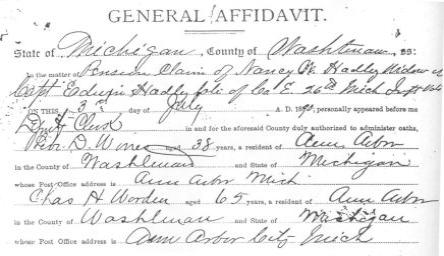 GENERAL AFFIDAVIT.
State of Michigan, County of Washtenaw, ss:
In the matter of Pension Claim of Nancy W. Hadley Widow of
Capt Edwin Hadley late of Co E. 26th Mich Inft Vols
ON THIS 3rd day of July A. D. 18 personally appeared before me
Deputy Clerk in and for the aforesaid County duly authorized to administer oaths,
D. aged 38 years, a resident of Ann Arbor
in the County of Washtenaw and State of Michigan
whose Post Office address is Ann Arbor Mich
Chas H Worden aged 65 years, a resident of Ann Arbor
in the County of Washtenaw and State of Michigan
whose Post Office address is Ann Arbor City Mich